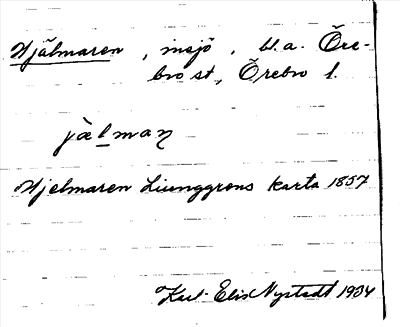 Hjälmaren, insjö, bl.a. Öre-
bro st., Örebro l.
jälmaṇ
Hjelmaren Liunggrens karta 1857
Karl-Elis Nystedt 1934